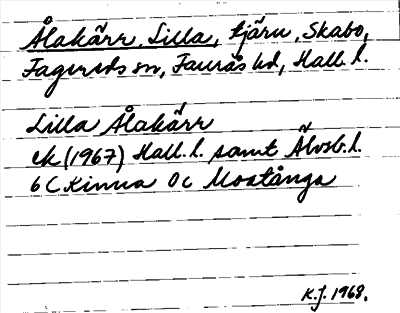 Ålakärr, Lilla, tjärn, Skabo,
Fagereds sn, Faurås hd, Hall. l.
Lilla Ålakärr
ek (1967) Hall. l. samt Älvsb. l.
6 C Kinna 0c Moatånga
K.J. 1968.